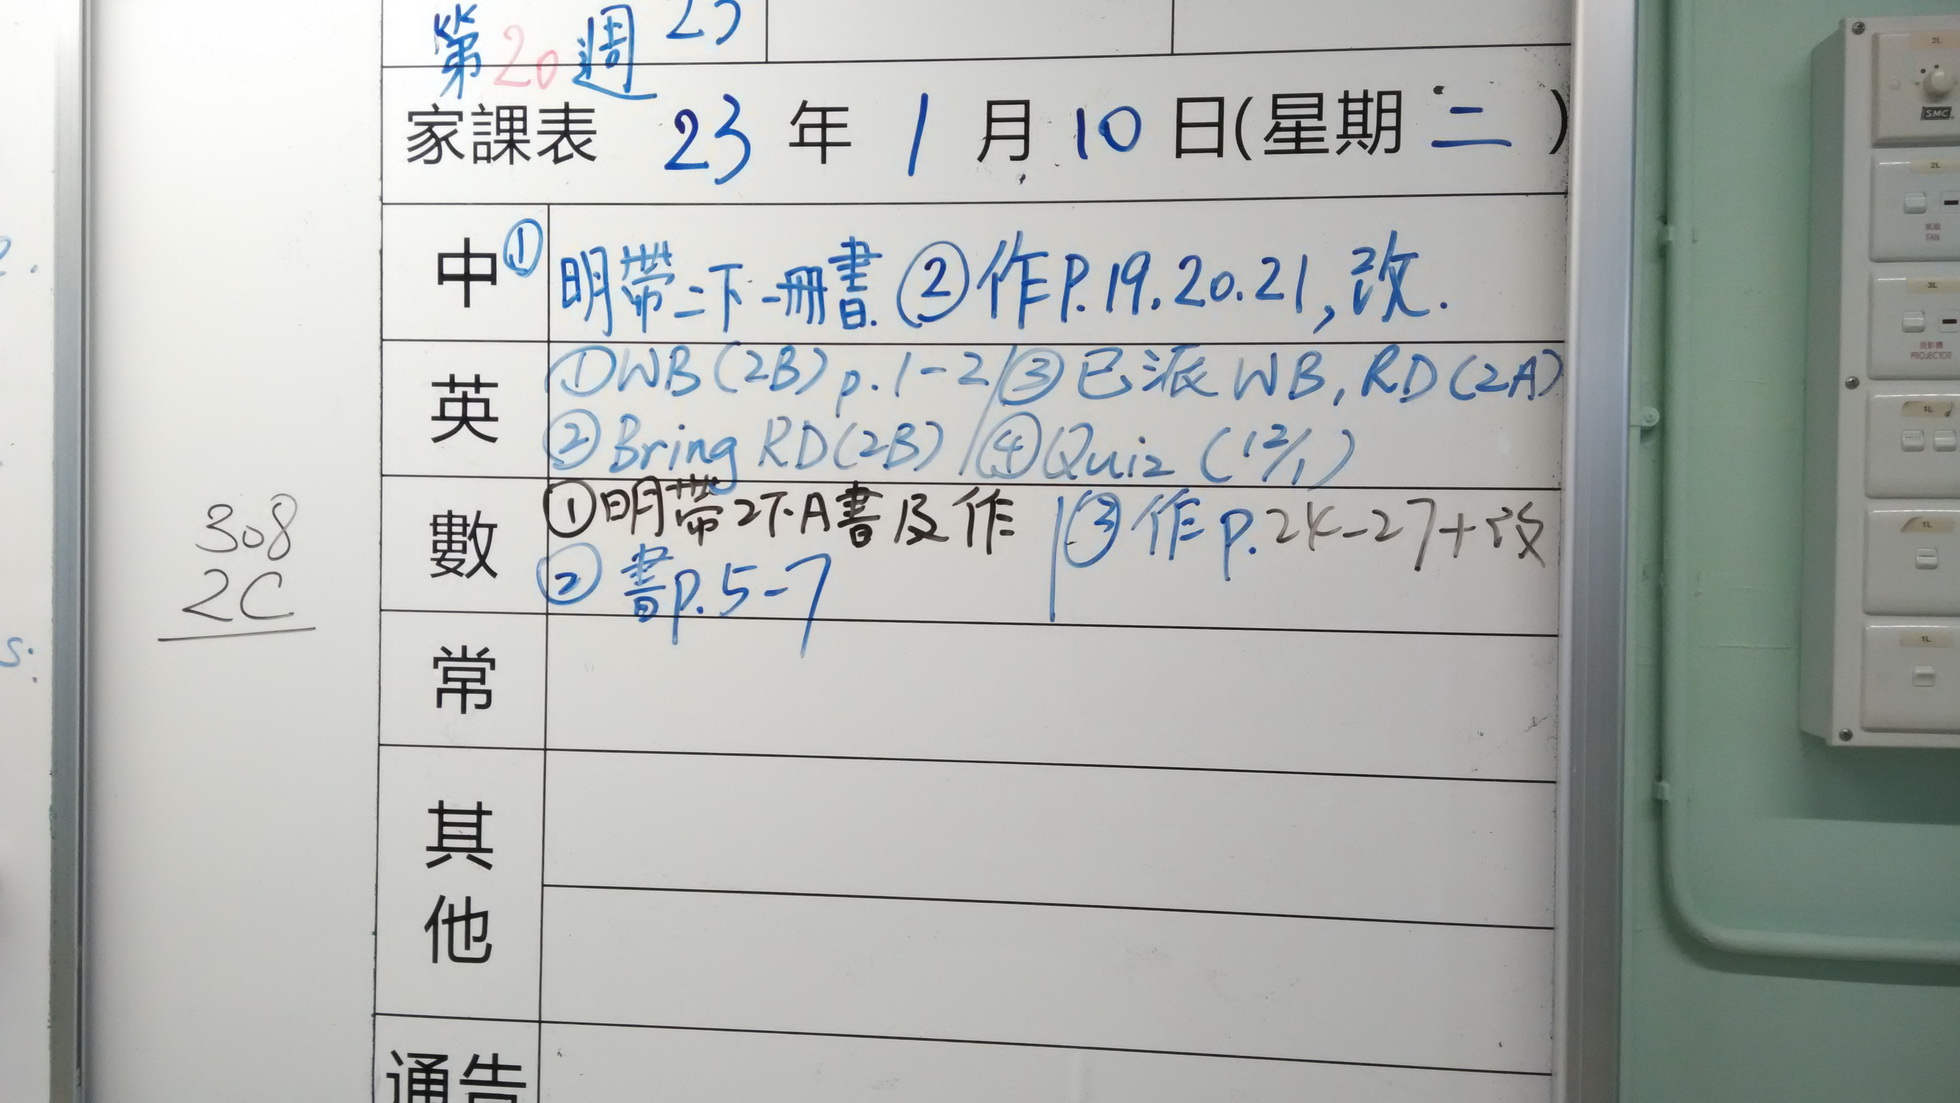 第20週 23
家課表 23 年 1 月 10 日(星期 二 )
中 ①明帶二下一冊書. ②作P.19.20.21,改.
英 ①WB(2B) p.1-2 / ③已派WB, RD(2A)
②Bring RD(2B) / ④Quiz (12/1)
數 ①明帶2下A書及作 | ③作p.24-27+改
② 書p.5-7
308
2C
常
其他
通告
SMC
2L
2L
風扇
FAN
3L
投影機
PROJECTOR
1L
1L
1L